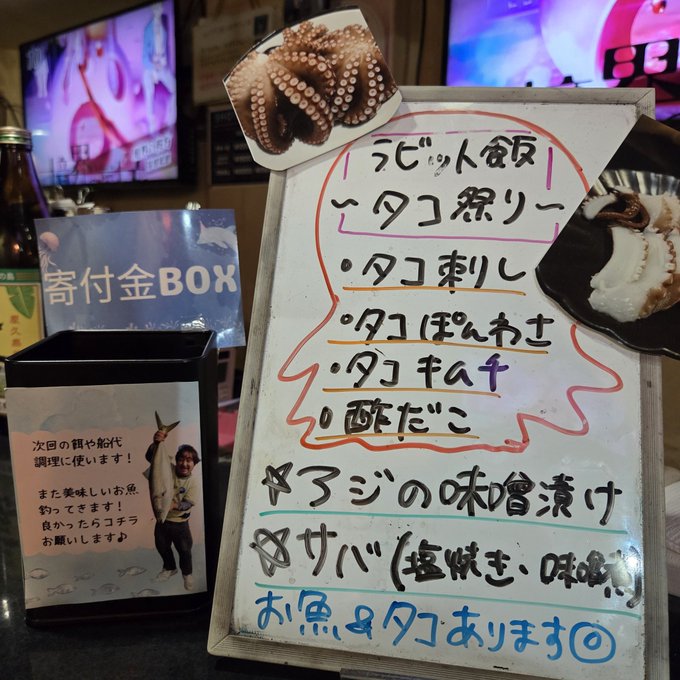 ラビット飯
～タコ祭り～
・タコ刺し
・タコぽんわさ
・タコキムチ
・酢だこ
☆アジの味噌漬け
☆サバ(塩焼き・味噌煮)
お魚&タコあります◎
寄付金BOX
次回の餌や船代
調理に使います!
また美味しいお魚
釣ってきます!
良かったらコチラ
お願いします♪
屋久島